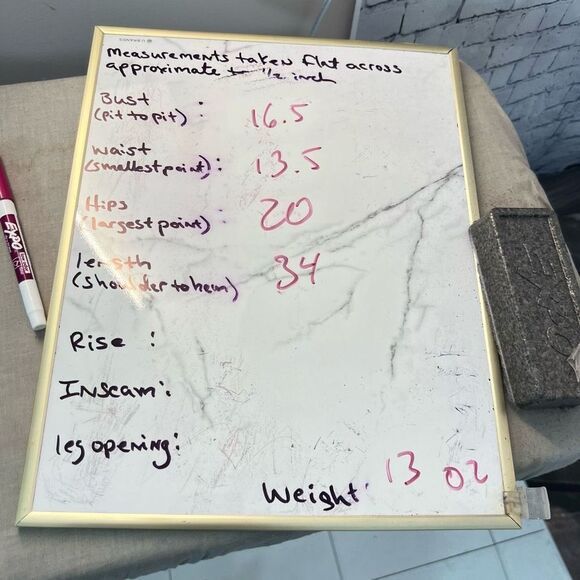 measurements taken flat across
approximate to 1/2 inch
Bust : 16.5
(pit to pit)
waist : 13.5
(smallest point)
Hips : 20
(largest point)
length 34
(shoulder to hem)
Rise :
Inseam :
leg opening :
Weight : 13 oz
EXPO